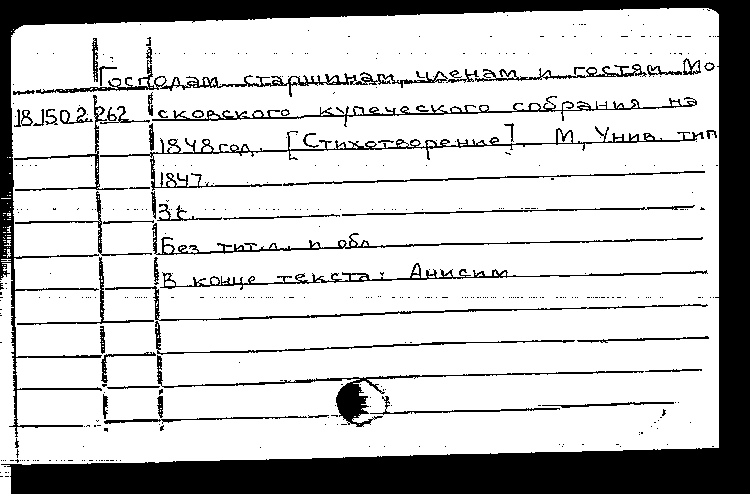 Господам старшинам, членам и гостям Мо-
18.150.2.262 сковского купеческого собрания на
1848 год. [Стихотворение]. М., Унив. тип
1847.
Без тит. л. и обл.
В конце текста: Анисим.